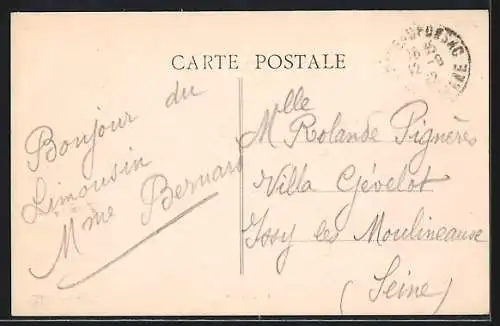 CARTE POSTALE
Bonjour du
Limousin
Mme Bernard
Mlle Rolande Pignères
Villa Gévelot
Issy les Moulineaux
(Seine)